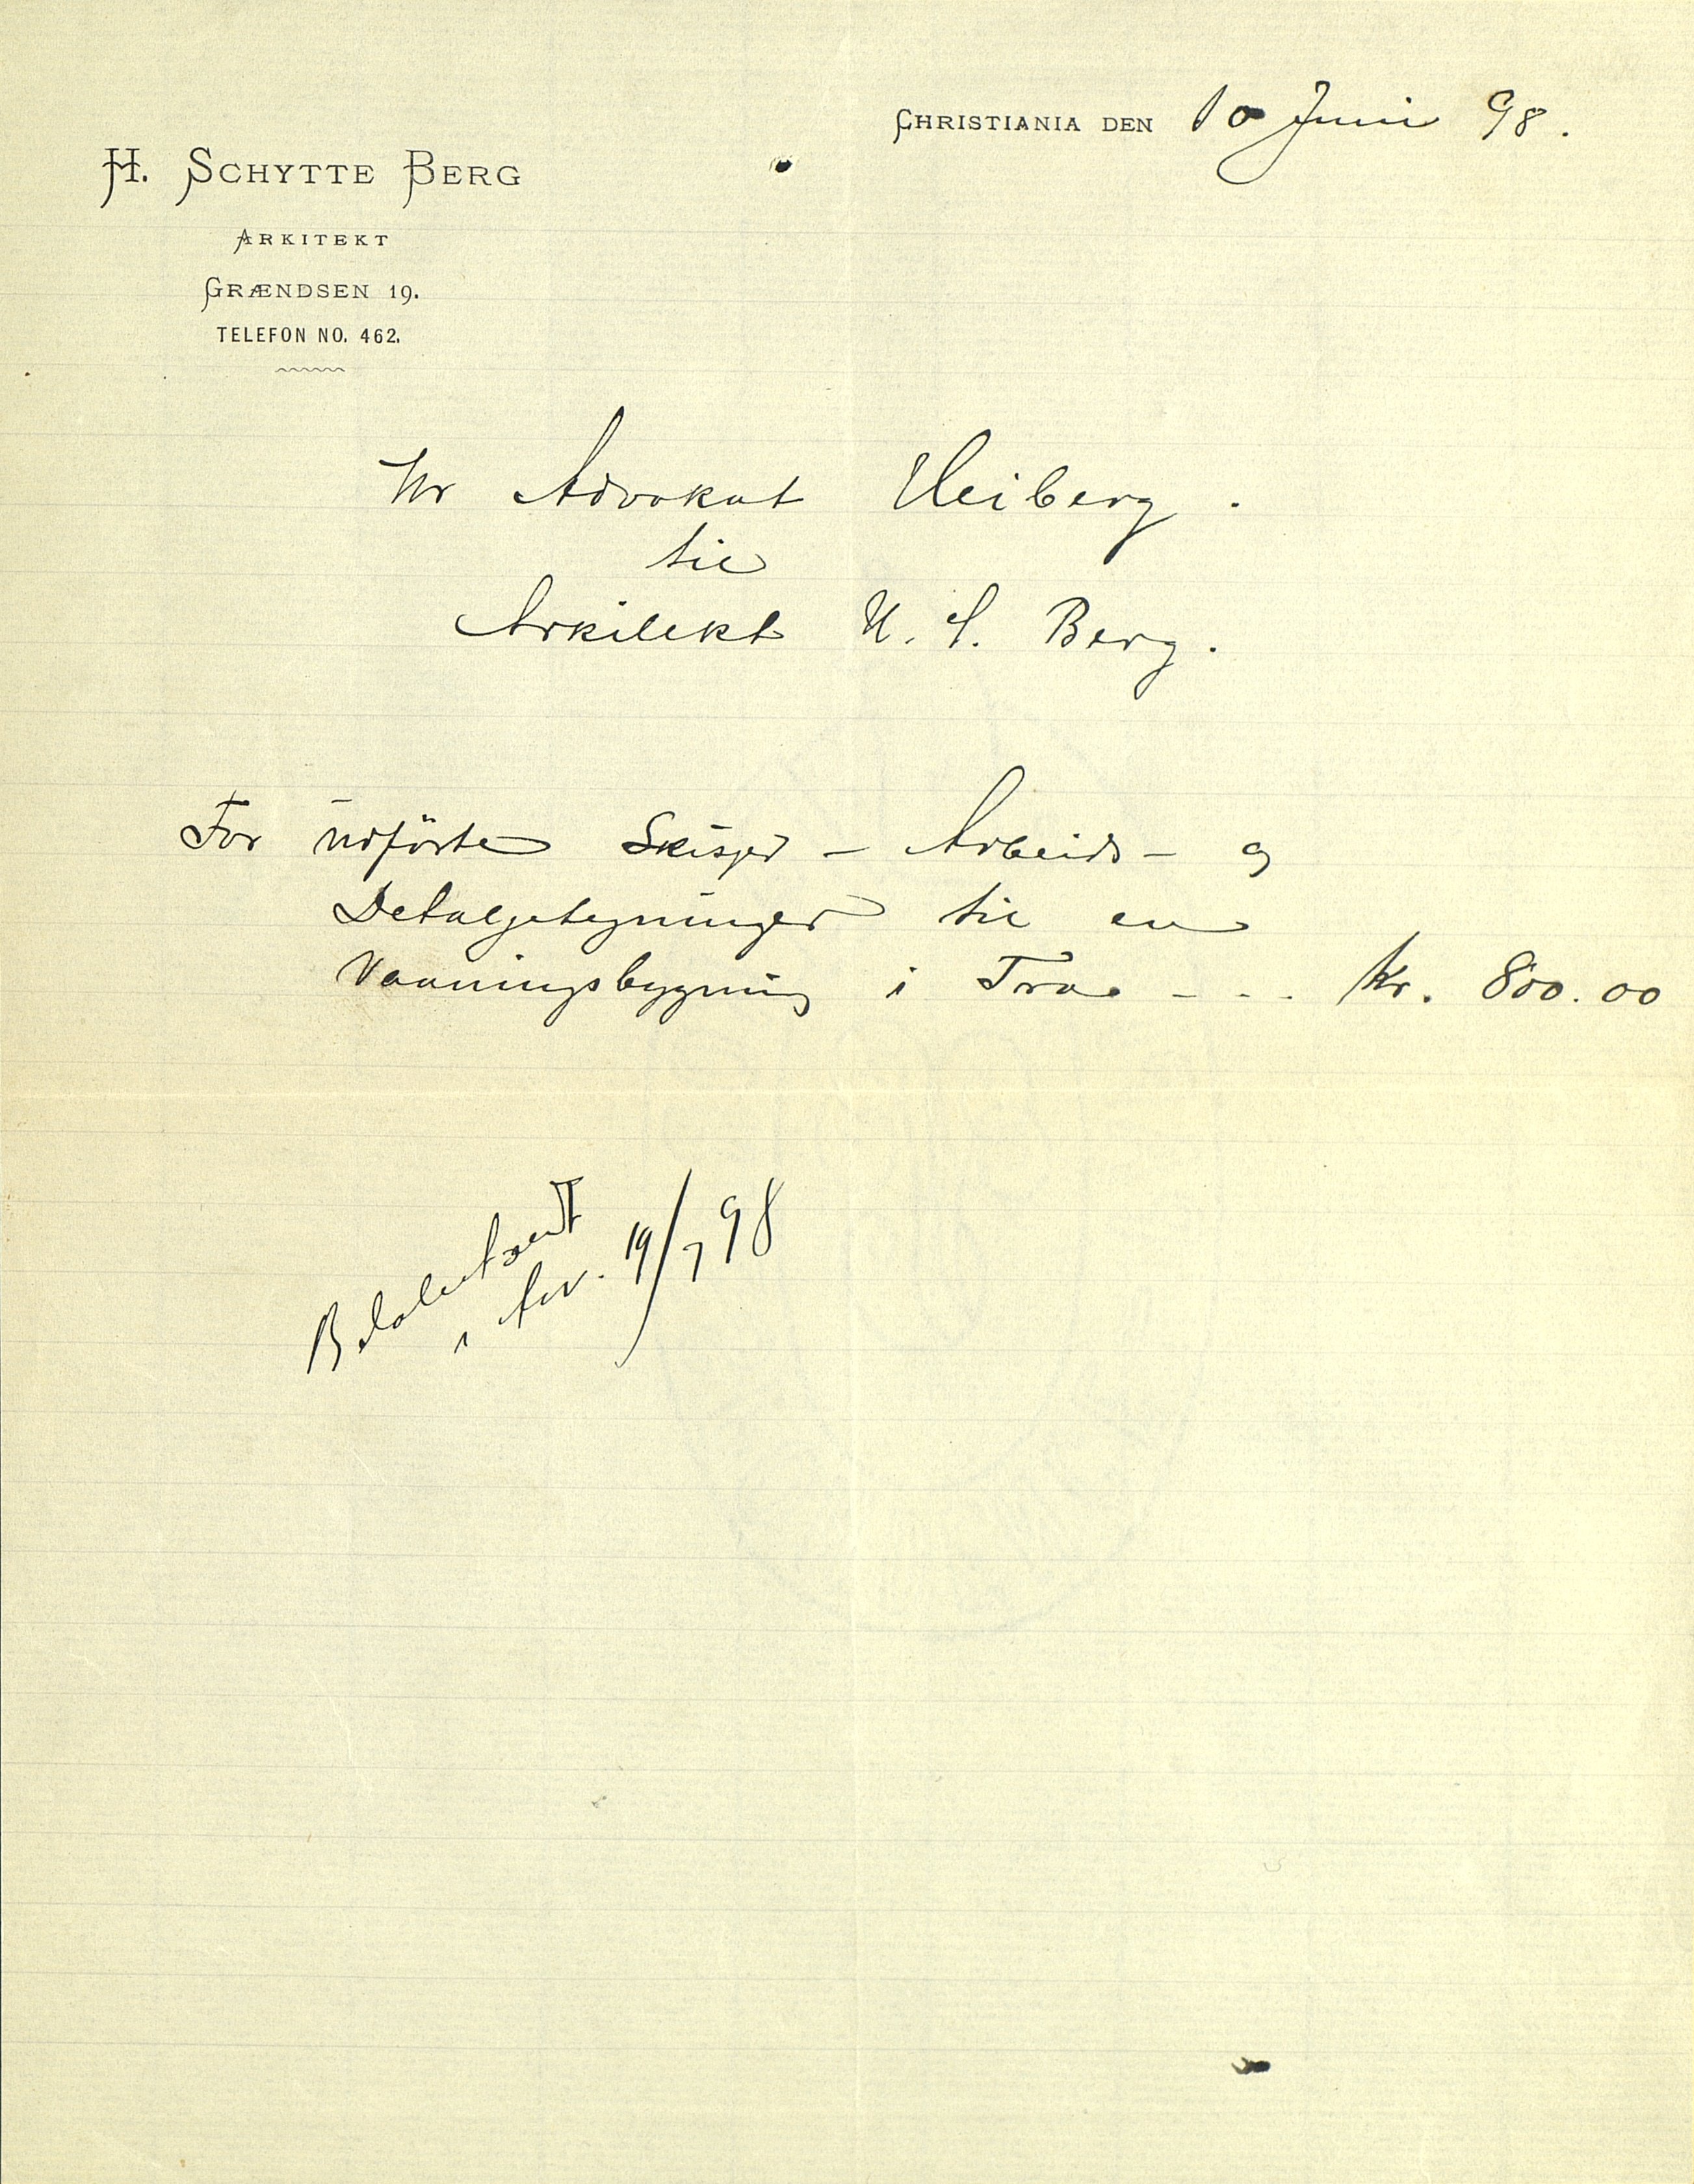 CHRISTIANIA DEN 10 Juni 98.
H. SCHYTTE BERG
ARKITEKT
GRÆNDSEN 19.
TELEFON NO. 462.
Hr Advokat Heiberg.
til
Arkitekt H. S. Berg.
For udförte Skisser- Arbeids- og
Detaljetegninger til en
Vaaningsbygning i Træ - - - Kr. 800.00
19/7 98